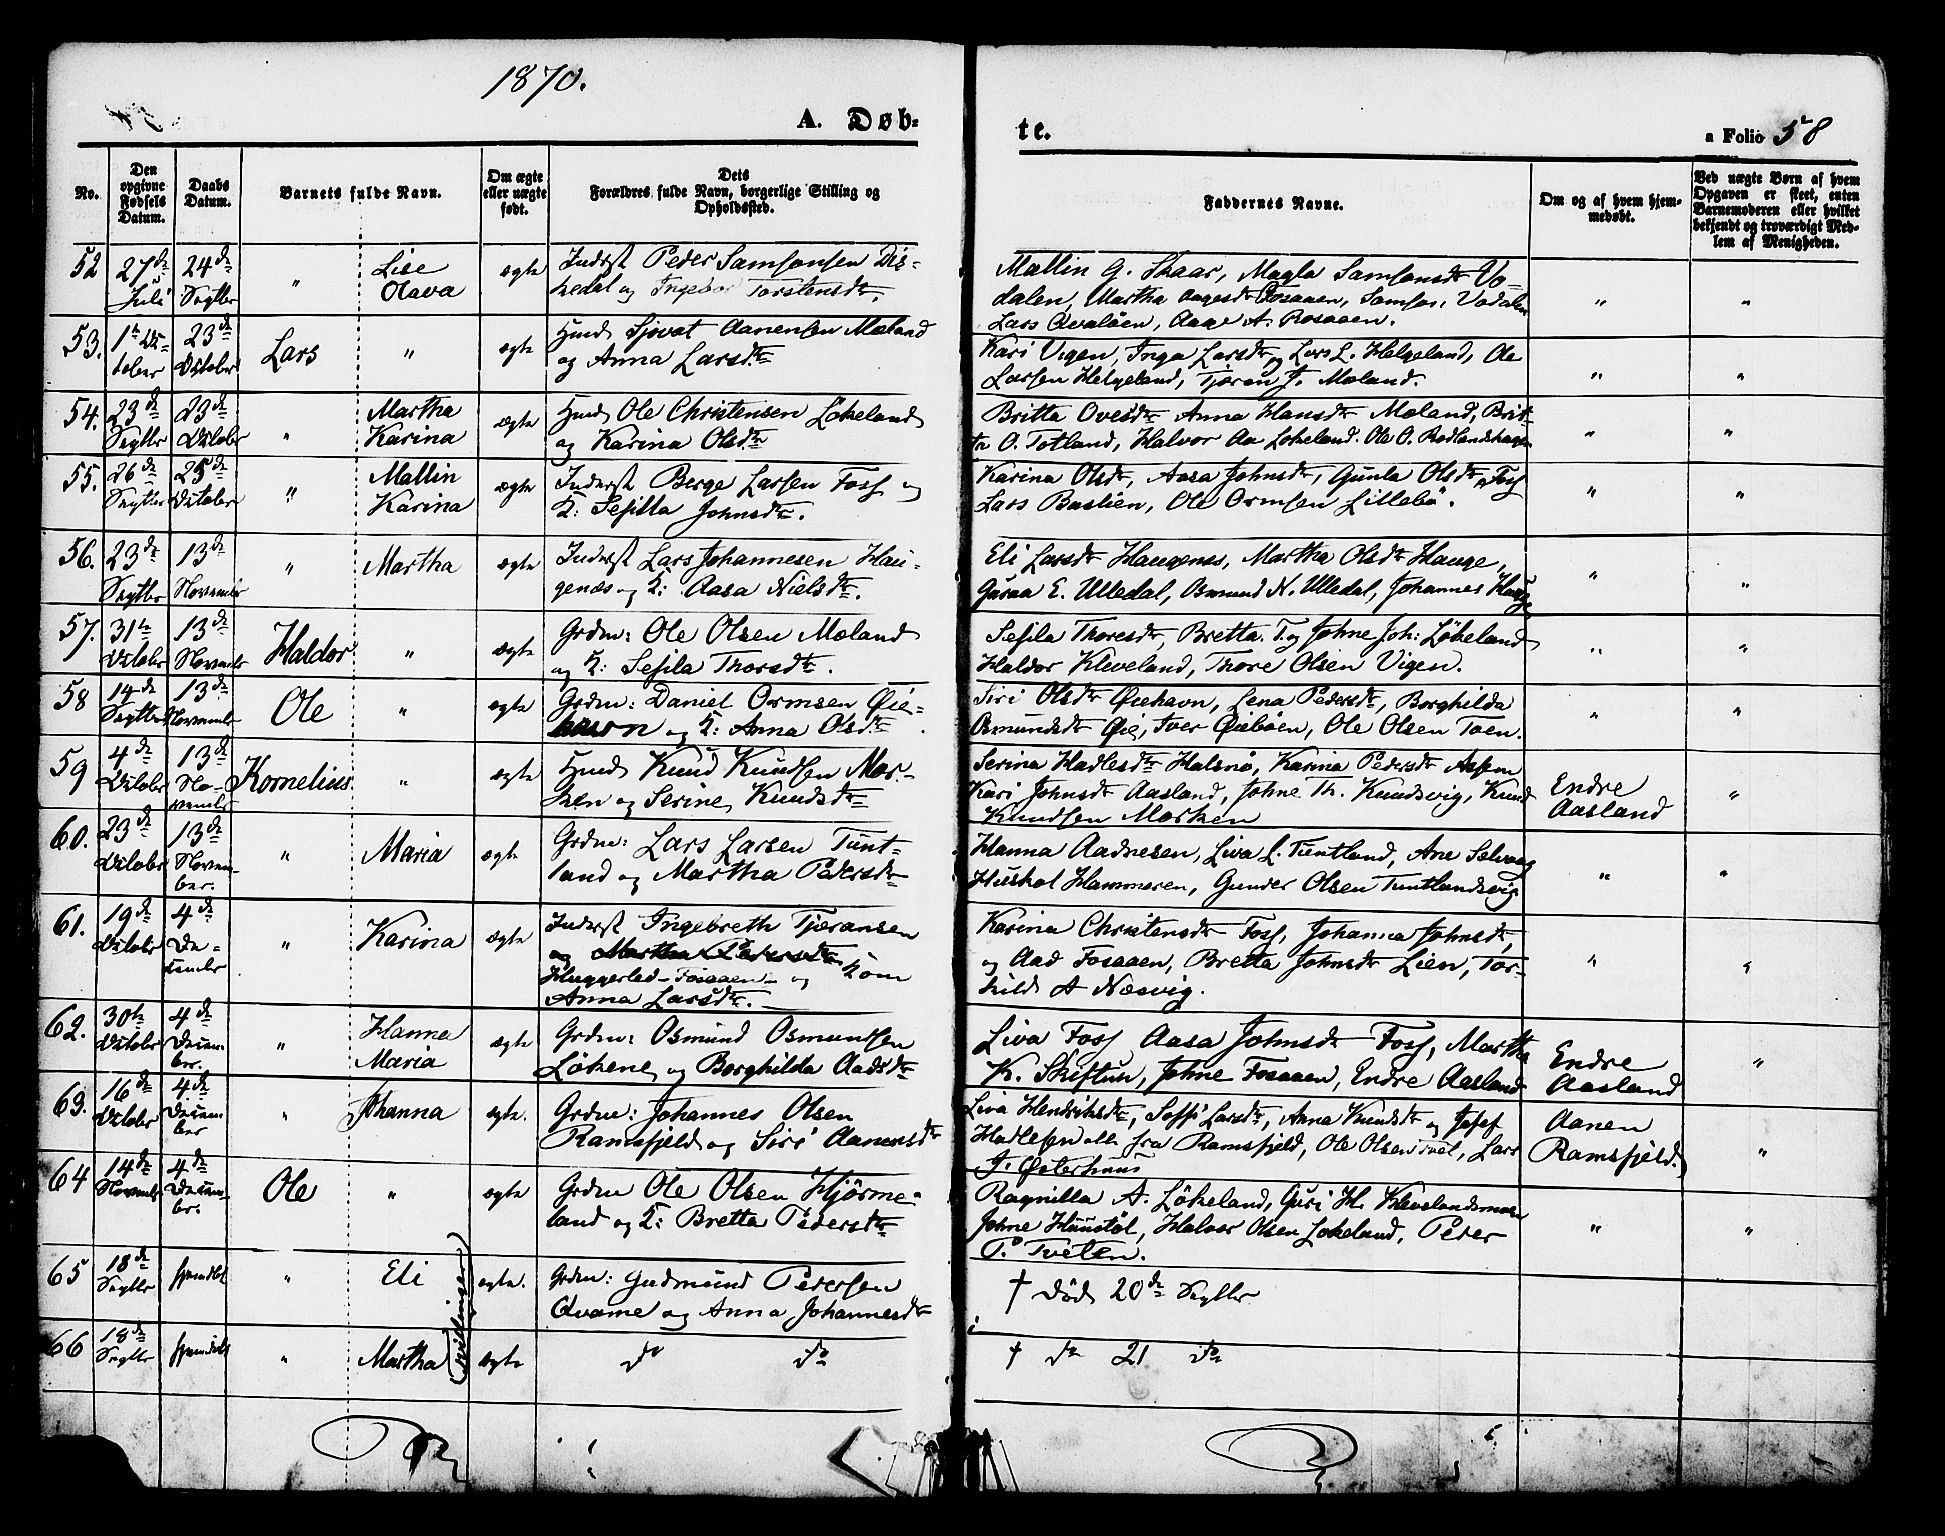 1870.
A. Døb-
te.
a Folio 58
No.
Den
opgivne
Fødsels
Datum.
Daabs
Datum.
Barnets fulde Navn.
Om ægte
eller uægte
født.
Dets
Forældres fulde Navn, borgerlige Stilling og
Opholdssted.
Faddernes Navne.
Om og af hvem hjem-
medøbt.
Ved uægte Børn af hvem
Opgaven er skeet, enten
Barnemoderen eller hvilket
bekjendt og troværdigt Med-
lem af Menigheden.
52 27de Juli 24de Septbr " Lise Olava ægte
Inderst Peder Samsonsen
og Ingebor Torstensdtr.
Mallin G. Skaar, Magla Samsonsdtr Vo-
dalen, Martha Fosaaen, Samson Vodalen
Lars Qvaløen, Aage A. Rosaaen.
" "
53. 1te October 23de October Lars " ægte
Huusm Sjovat Aanensen Mæland
og Anna Larsdtr.
Kari Vigen, Inga Larsdtr og Lars L. Helgeland, Ole
Larsen Helgeland, Tjæran J. Mæland.
" "
54. 23de Septbr 23de Octobr " Martha Karina ægte
Huusm Ole Christensen Løkeland
og Karina Olsdtr
Britta Ovesdtr Anna Hansdtr Mæland, Brit-
ta O. Totland, Halvor Aa Løkeland. Ole O. Rødlandshagen
" "
55. 26de Septbr 25de Octobr " Mallin Karina ægte
Inderst Berge Larsen Foss og
K: Sesilla Johnsdtr.
Karina Olsdtr, Aasa Johnsdtr, Gunla Olsdtr Foss
Lars Bastien, Ole Ormsen Lillebø.
" "
56. 23de Septbr 13de Novembr " Martha ægte
Inderst Lars Johannesen Hau-
genæs og K: Aasa Nielsdtr.
Eli Larsdtr Haugenes, Martha Olsdtr Hauge,
Guroa E. Ulledal, Osmund N. Ulledal, Johannes Hauge
" "
57. 31te Octobr 13de Novembr Haldor " ægte
Grdm: Ole Olsen Mæland
og K: Sesila Thorsdtr.
Sesila Thoresdtr, Bretta T. og Johne Joh: Løkeland
Haldor Kleveland, Thore Olsen Vigen.
" "
58 14de Septbr 13de Novembr Ole " ægte
Grdm: Daniel Ormsen Øie-
havn og K: Anna Olsdtr.
Siri Olsdtr Øiehavn, Lena Pedersdtr, Borghilda
Osmundsdtr Øie, Iver Øiebøen, Ole Olsen Toen.
" "
59 4de Octobr 13de Novembr Kornelius " ægte
Huusm Knud Knudsen Mar-
ken og Serine Knudsdtr
Serina Hadlesdtr Halsnø, Karina Pedersdtr Aspem
Kari Johnsdtr Aasland, Johne Th. Knudsvig, Knud
Knudsen Marken
Endre
Aasland
"
60. 23de Octobr 13de November. " Maria ægte
Grdm: Lars Larsen Tunt-
land og Martha Pedersdtr
Hanna Aadnesen, Liva L. Tuntland, Ane Selvaag
Huskol Hammeren, Gunder Olsen Tuntlandsvig.
" "
61. 19de Octobr 4de Decembr " Karina ægte
Inderst Ingebreth Tjæransen
og Martha Pedersdtr
Huggerled-Fosaaen - og Kone
Anna Larsdtr.
Karina Christensdtr Foss, Johanna Johnsdtr,
og Aad Fosaaen, Bretta Johnsdtr Lien, Tor-
kild A Næsvig.
" "
62. 30te Octobr 4de December. " Hanna Maria ægte
Grdm: Osmund Osmundsen
Løkene og Borghilda Aadsdtr
Liva Foss Aasa Johnsdtr Foss, Martha
K. Skiftun, Johne Fosaaen, Endre Aasland
Endre
Aasland
"
63. 16de Octobr 4de December " Johanna ægte.
Grdm: Johannes Olsen
Ramsfjeld og Siri Aanensdtr
Liva Hendriksdtr, Soffi Larsdtr, Anna Knudsdtr og Josef
Hadlesen alle fra Ramsfjeld, Ole Olsen Tvet, Lars
J. Østerhuus
Aanen
Ramsfjeld.
"
64 14de Novembr 4de Decembr. Ole " ægte
Grdm Ole Olsen Hjørme-
land og K: Bretta Pedersdtr
Ragnilla A. Løkeland, Guri H. Klevelandsmoen
Johne Hunstøl, Halvor Olsen Løkeland, Peder
P. Tveten.
" "
65 18de Septbr hjemdøbt " Eli ægte.
(tvillinger)
Grdm: Gudmund Pedersen
Qvame og Anna Johannesdtr
† Død 20de Septbr
66 18de Septbr hjemdøbt " Martha ægte
do do
† do 21 do